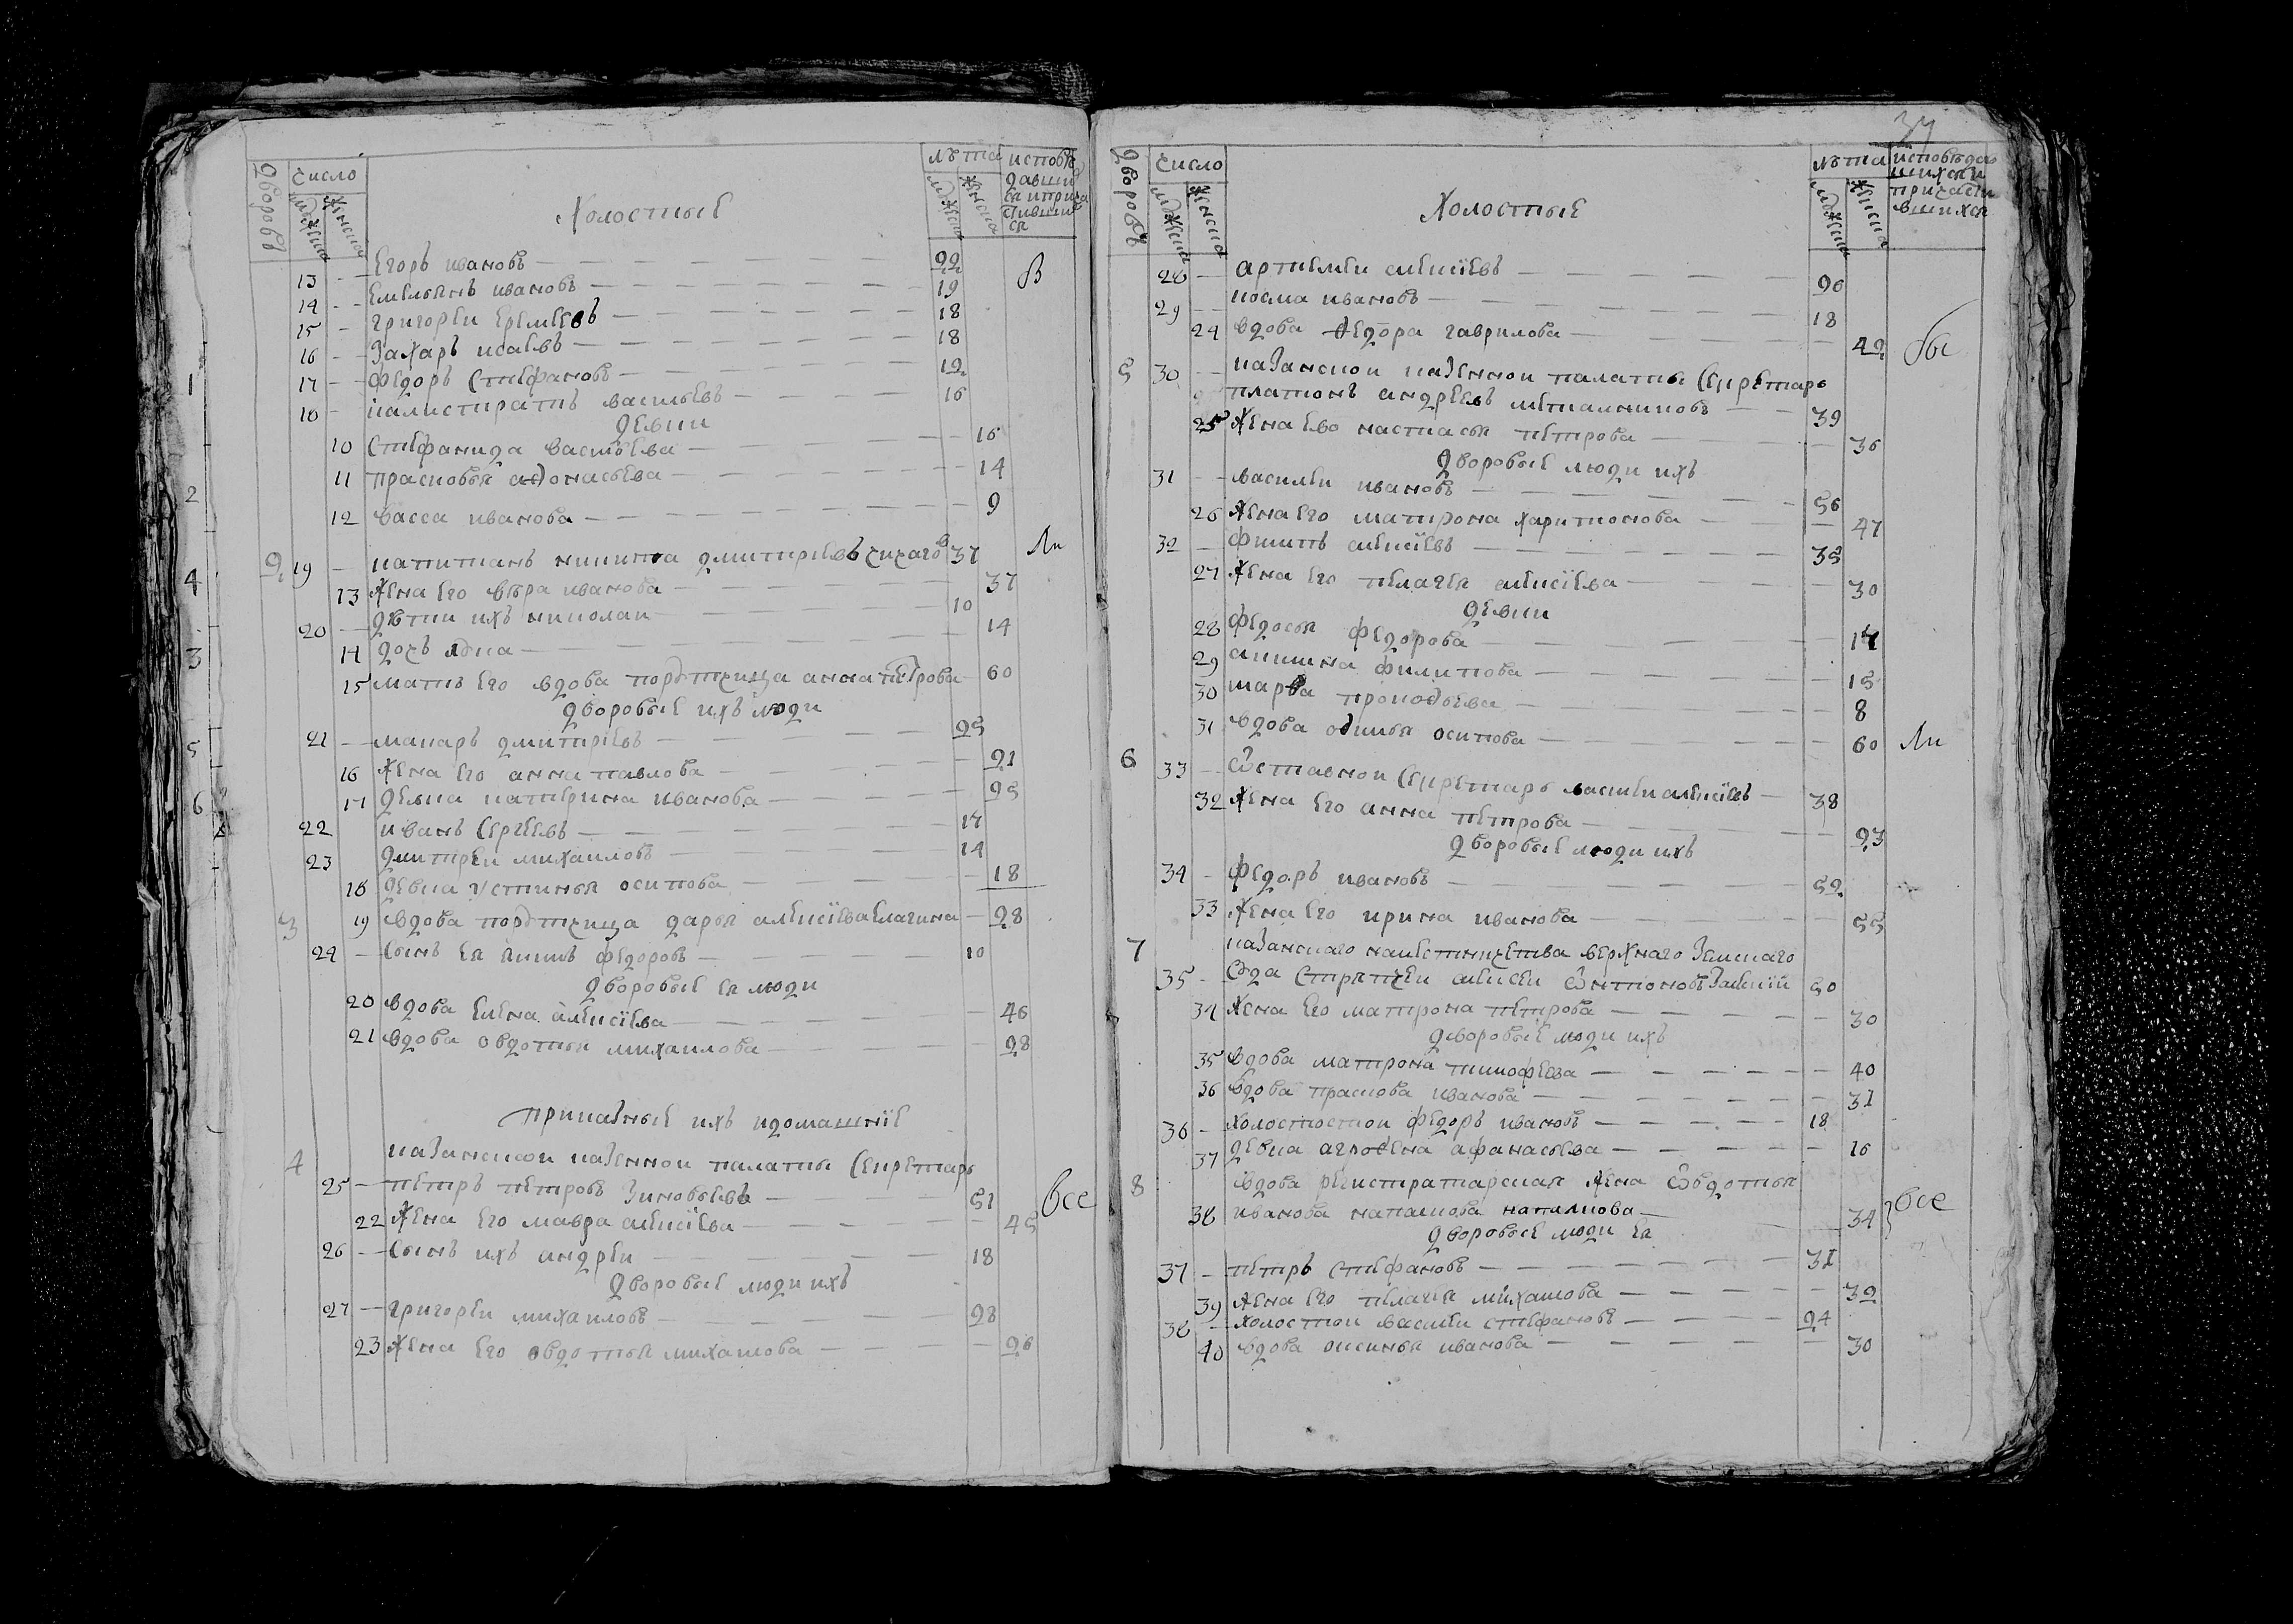 дворовъ число мужеска женска Холостые лѣта мужеска женска исповѣдавшихся и причастившихся
13 Егоръ ивановъ 22
14 Емельянъ ивановъ 19
15 григореи еремѣевъ 18
16 захаръ исаевъ 18
17 федоръ Степановъ 12
18 калистратъ васильевъ 16
девки
10 Стефанида васильева 16
11 прасковья афонасьева 14
12 васса иванова 9
2 19 капитанъ никита дмитріевъ чихаговъ 37
13 жена его вѣра иванова 37
20 дѣти ихъ николаи 10
14 дочь 14
15 мать его вдова порутчица анна петрова 60
дворовые ихъ люди
21 макаръ дмитріевъ 25
16 жена его анна павлова 21
17 девка катерина иванова 25
22 иванъ Сергеевъ 17
23 дмитреи михаиловъ 14
18 девка устинья осипова 18
3 19 вдова порутчица дарья алексіева елагина 28
24 Сынъ ея федоровъ 10
дворовые ея люди
20 вдова елена алексіева 46
21 вдова овдотья михаилова 28
приказные ихъ идомашніе
4 казанскои казеннои палаты Секретарь
25 петръ петровъ зиновьевъ 51 все
22 жена его мавра алексіева 45
26 Сынъ ихъ андреи 18
дворовые люди ихъ
27 григореи михаиловъ 28
23 жена его овдотья михаилова 26
34
дворовъ число мужеска женска Холостые лѣта мужеска женска исповѣдавшихся и причастившихся
28 артемеи алексіевъ 20
29 козма ивановъ 18
24 вдова федора гаврилова 42
5 30 казанскои казеннои палаты Секретарь
платонъ андреевъ металниковъ 39
25 жена ево настасья петрова 36
дворовые люди ихъ
31 василеи ивановъ 56
26 жена его матрона харитонова 47
32 филипъ алексіевъ 35
27 жена его пелагея алексіева 30
девки
28 федосья федорова 17
29 акилина филипова 15
30 марфа прокофьева 8
31 вдова осипова 60
6 33 Ѿставнои Секретарь василеи алексіевъ 38
32 жена его анна петрова 27
дворовые люди ихъ
34 федоръ ивановъ 52
33 жена его ирина иванова 55
7 казанскаго намѣстничества верхнаго земскаго
35 Суда Стряпчеи алексеи 50
34 жена его матрона петрова 30
дворовые люди ихъ
35 вдова матрона тимофеева 40
36 вдова праскова иванова 31
36 холостостои федоръ ивановъ 18
37 девка агрофена афанасьева 16
8 вдова регистраторская жена Ѡвдотья
38 иванова 34 все
дворовые люди ея
37 петръ Стефановъ 31
39 жена его пелагея михаилова 32
38 холостои василеи стефановъ 24
40 вдова оксинья иванова 30